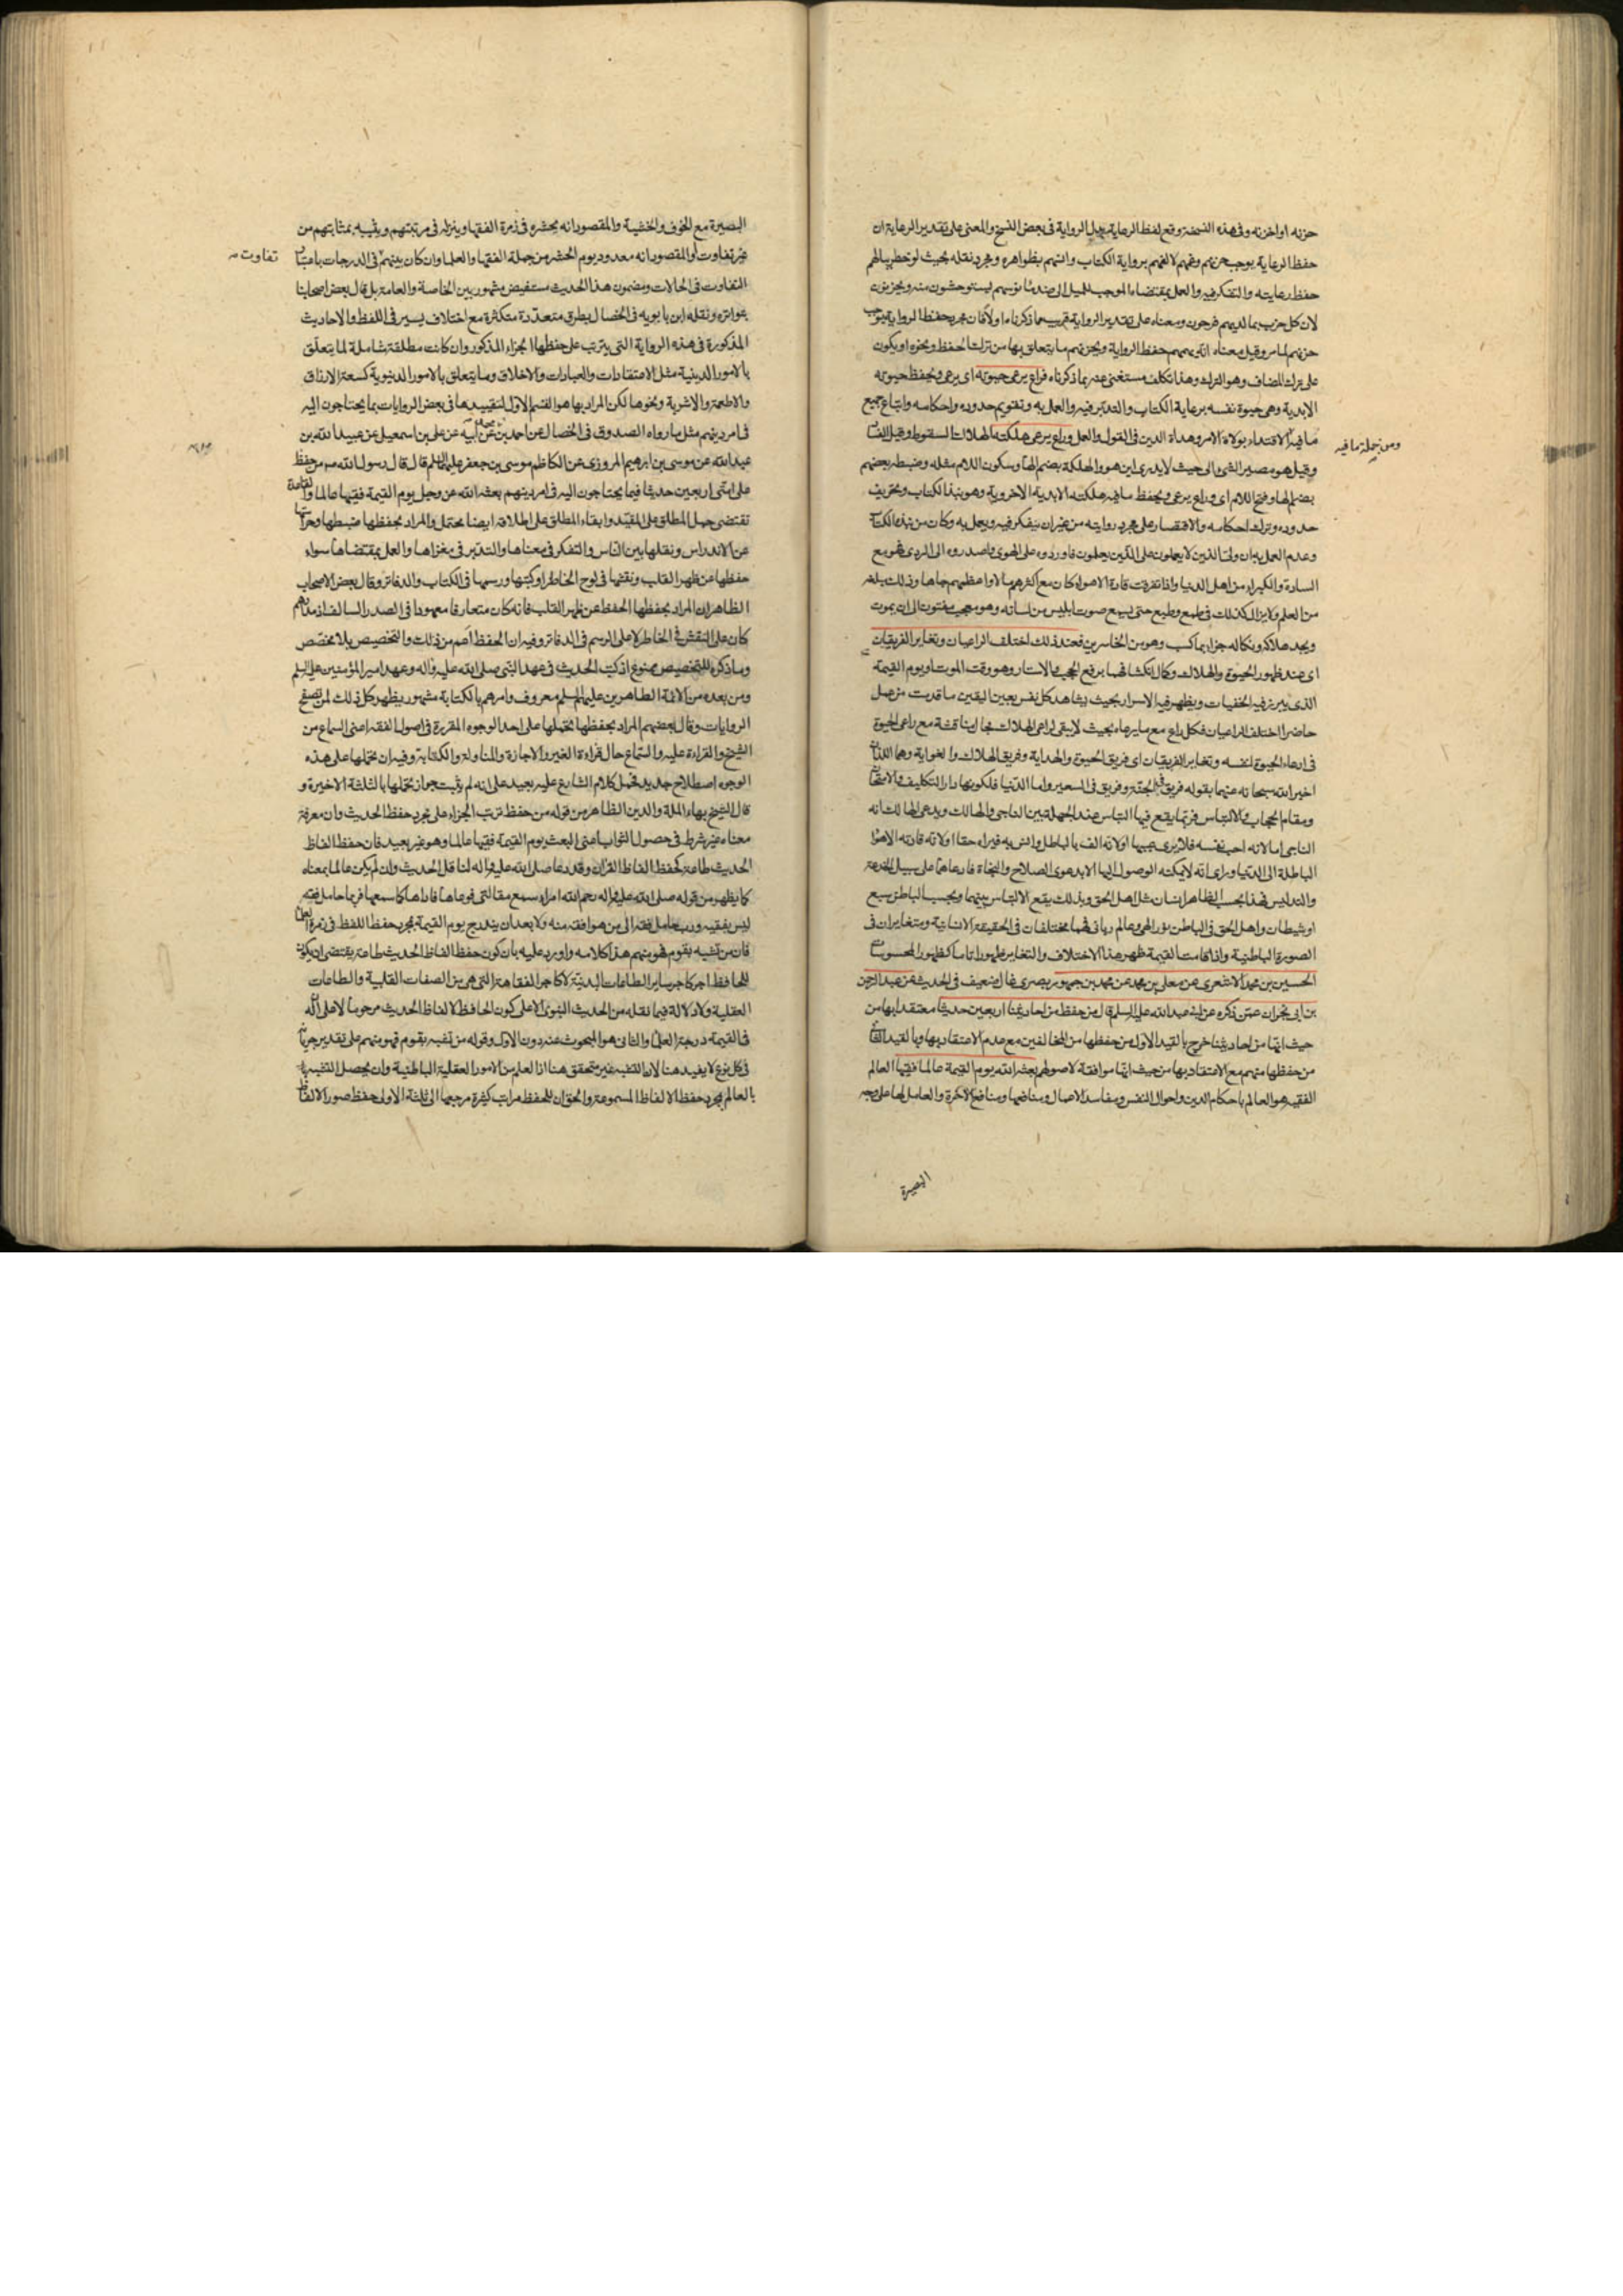 حزنه او احزنه وفى هذه النسخة وقع لفظ الرعاية بدل الرواية فى بعض النسخ والمعنى على تقدير الرعاية ان
حفظ الرعاية يوجب حزنهم وغمهم لالفهم برواية الكتاب وانسهم بظواهره ومجرد نقله بحيث لو خطر ببالهم
حفظ رعايته والتفكر فيه والعمل بمقتضاه الموجب للميل الى ضد مأنوسهم ليستوحشون منه ويحزنون
لان كل حزب بما لديهم فرحون ومعناه على تقدير الرواية قريب مما ذكرناه اولا فان مجرد حفظ الرواية يوجب
حزنهم لما مر وقيل معناه انه يهمهم حفظ الرواية ويحزنهم ما يتعلق بها من ترك الحفظ ونحوه او يكون
على ترك المضاف وهو الترك وهذا تكلف مستغنى عنه بما ذكرناه فراع يرعى حيوته اى يرعى ويحفظ حيوته
الابدية وهى حيوة نفسه برعاية الكتاب والتدبر فيه والعمل به وتقويم حدوده واحكامه واتباع جميع
ما فيه الاقتداء بولاة الامر وهداة الدين فى القول والعمل وراع يرعى هلكته الهلاك السقوط وقيل الفساد
ومن جملة ما فيه
وقيل هو مصير الشئ الى حيث لا يدرى اين هو والهلكة بضم الهاء وسكون اللام مثله وضبطه بعضهم
بضم الهاء وفتح اللام اى وراع يرعى ويحفظ ما فيه هلكته الابدية الاخروية وهو نبذ الكتاب وتحريف
حدوده وترك احكامه والاقتصار على مجرد روايته من غير ان يتفكر فيه ويعمل به وكان من نبذه الكتاب
وعدم العمل به ان ولى الذين لا يعلمون على الذين يعلمون فاوردوه على الهوى واصدروه الى الردى فهو مع
السادة والكبراء من اهل الدنيا واذا تفرقت قادة الاهواء كان مع اكثرهم مالا واعظمهم جاها وذلك بلغه
من العلم ولا يزال كذلك فى طمع وطبع حتى يسمع صوت ابليس من لسانه وهو معجب مفتون الى ان يموت
ويجد هلاكه ونكاله جزاء بما كسب وهو من الخاسرين فعند ذلك اختلف الراعيان وتغاير الفريقان
اى عند ظهور الحيوة والهلاك وكمال انكشافهما برفع الحجب والاستار وهو وقت الموت او يوم القيمة
الذى يبرز فيه الخفيات ويظهر فيه الاسرار بحيث يشاهد كل نفس بعين اليقين ما قدمت من عمل
حاضرا اختلف الراعيان فكل راع مع ما يرعاه بحيث لا يبقى لراعى الهلاك مجال مناقشة مع راعى الحيوة
فى ادعاء الحيوة لنفسه وتغاير الفريقان اى فريق الحيوة والهداية وفريق الهلاك والغواية وهما اللذان
اخبر الله سبحانه عنهما بقوله فريق فى الجنة وفريق فى السعير واما الدنيا فلكونها دار التكليف والامتحان
ومقام الحجاب والالتباس فربما يقع فيها التباس عند الجهلة بين الناجى والهالك ويدعى الهالك انه
الناجى اما لانه احب نفسه فلا يرى عيبها او لانه الف بالباطل وانس به فيراه حقا او لانه قادته الاهواء
الباطلة الى الدنيا وراى انه لا يمكنه الوصول اليها الا بدعوى الصلاح والنجاة فادعاهما على سبيل الخدعة
والتدليس فهذا بحسب الظاهر انسان مثل اهل الحق وبذلك يقع الالتباس بينهما وبحسب الباطن سبع
او شيطان واهل الحق فى الباطن نور الهى وعالم ربانى فهما مختلفان فى الحقيقة الانسانية ومتغايران فى
الصورة الباطنية واذا قامت القيمة ظهر هذا الاختلاف والتغاير ظهورا تاما كظهور المحسوسات
الحسين بن محمد الاشعرى عن معلى بن محمد عن محمد بن جمهور بصرى غال ضعيف فى الحديث عن عبد الرحمن
بن ابى نجران عمن ذكره عن ابى عبد الله عليه السلم قال من حفظ من احاديثنا اربعين حديثا معتقدا بها من
حيث انها من احاديثنا خرج بالقيد الاول من حفظها من المخالفين مع عدم الاعتقاد بها وبالقيد الثانى
من حفظها منهم مع الاعتقاد بها من حيث انها موافقة لاصولهم بعثه الله يوم القيمة عالما فقيها العالم
الفقيه هو العالم باحكام الدين واحوال النفس ومفاسد الاعمال ومنافعها ومنافع الاخرة والعامل لها على وجه
البصيرة
البصيرة مع الخوف والخشية والمقصود انه يحشره فى زمرة الفقهاء وينزله فى مرتبتهم ويثيبه بمثابتهم من
غير تفاوت او المقصود انه معدود يوم الحشر من جملة الفقهاء والعلماء وان كان بينهم فى الدرجات باعتبار
تفاوت
التفاوت فى الحالات ومضمون هذا الحديث مستفيض مشهور بين الخاصة والعامة بل قال بعض اصحابنا
بتواتره ونقله ابن بابويه فى الخصال بطرق متعددة متكثرة مع اختلاف يسير فى اللفظ والاحاديث
المذكورة فى هذه الرواية التى يترتب على حفظها الجزاء المذكور وان كانت مطلقة شاملة لما يتعلق
بالامور الدينية مثل الاعتقادات والعبادات والاخلاق وما يتعلق بالامور الدنيوية كسعة الارزاق
والاطعمة والاشربة ونحوها لكن المراد بها هو القسم الاول لتقييدها فى بعض الروايات بما يحتاجون اليه
فى امر دينهم مثل ما رواه الصدوق فى الخصال عن احمد بن محمد عن ابيه عن على بن اسمعيل عن عبيد الله بن
عبد الله عن موسى بن ابرهيم المروزى عن الكاظم موسى بن جعفر عليهما السلم قال قال رسول الله ص من حفظ
على امتى اربعين حديثا فيما يحتاجون اليه فى امر دينهم بعثه الله عز وجل يوم القيمة فقيها عالما والقاعدة
تقتضى حمل المطلق على المقيد وابقاء المطلق على اطلاقه ايضا محتمل والمراد بحفظها ضبطها وحراستها
عن الاندراس ونقلها بين الناس والتفكر فى معناها والتدبر فى مغزاها والعمل بمقتضاها سواء
حفظها عن ظهر القلب ونقشها فى لوح الخاطر او كتبها ورسمها فى الكتاب والدفاتر وقال بعض الاصحاب
الظاهر ان المراد بحفظها الحفظ عن ظهر القلب فانه كان متعارفا معهودا فى الصدر السالف اذ مدارهم
كان على النقش فى الخاطر لا على الرسم فى الدفاتر وفيه ان الحفظ اعم من ذلك والتخصيص بلا مخصص
وما ذكره للتخصيص ممنوع اذ كتب الحديث فى عهد النبى صلى الله عليه واله وعهد امير المؤمنين عليه السلم
ومن بعده من الائمة الطاهرين عليهم السلم معروف وامرهم بالكتابة مشهور يظهر كل ذلك لمن تصفح
الروايات وقال بعضهم المراد بحفظها تحملها على احد الوجوه المقررة فى اصول الفقه اعنى السماع من
الشيخ والقراءة عليه والسماع حال قراءة الغير والاجازة والمناولة والكتابة وفيه ان تحملها على هذه
الوجوه اصطلاح جديد فحمل كلام الشارع عليه بعيد على انه لم يثبت جواز تحملها بالثلثة الاخيرة و
قال الشيخ بهاء الملة والدين الظاهر من قوله من حفظ ترتب الجزاء على مجرد حفظ الحديث وان معرفة
معناه غير شرط فى حصول الثواب اعنى البعث يوم القيمة فقيها عالما وهو غير بعيد فان حفظ الفاظ
الحديث طاعة كحفظ الفاظ القران وقد دعا صلى الله عليه واله لناقل الحديث وان لم يكن عالما بمعناه
كما يظهر من قوله صلى الله عليه واله رحم الله امراء سمع مقالتى فوعاها فاداها كما سمعها فربما حامل فقه
ليس بفقيه ورب حامل فقه الى من هو افقه منه ولا بعد ان يندرج يوم القيمة بمجرد حفظ اللفظ فى زمرة العلماء
فان من تشبه بقوم فهو منهم هذا كلامه واورد عليه بان كون حفظ الفاظ الحديث طاعة يقتضى ان يكون
للحافظ اجر كاجر ساير الطاعات البدنية لا كاجر الفقاهة التى هى من الصفات القلبية والطاعات
العقلية ولا دلالة فيما نقله من الحديث النبوى الا على كون الحافظ لالفاظ الحديث مرحوما لا على انه
فى القيمة فى درجة العلماء والثانى هو المبحوث عنه دون الاول وقوله من تشبه بقوم فهو منهم على تقدير جريانه
فى كل نوع لا يفيد هنا لان التشبه غير متحقق هنا اذ العلم من الامور العقلية الباطنية وان يحصل التشبه
بالعالم بمجرد حفظ الالفاظ المسموعة والحق ان للحفظ مراتب كثيرة مرجعها الى ثلثة الاولى حفظ صور الالفاظ